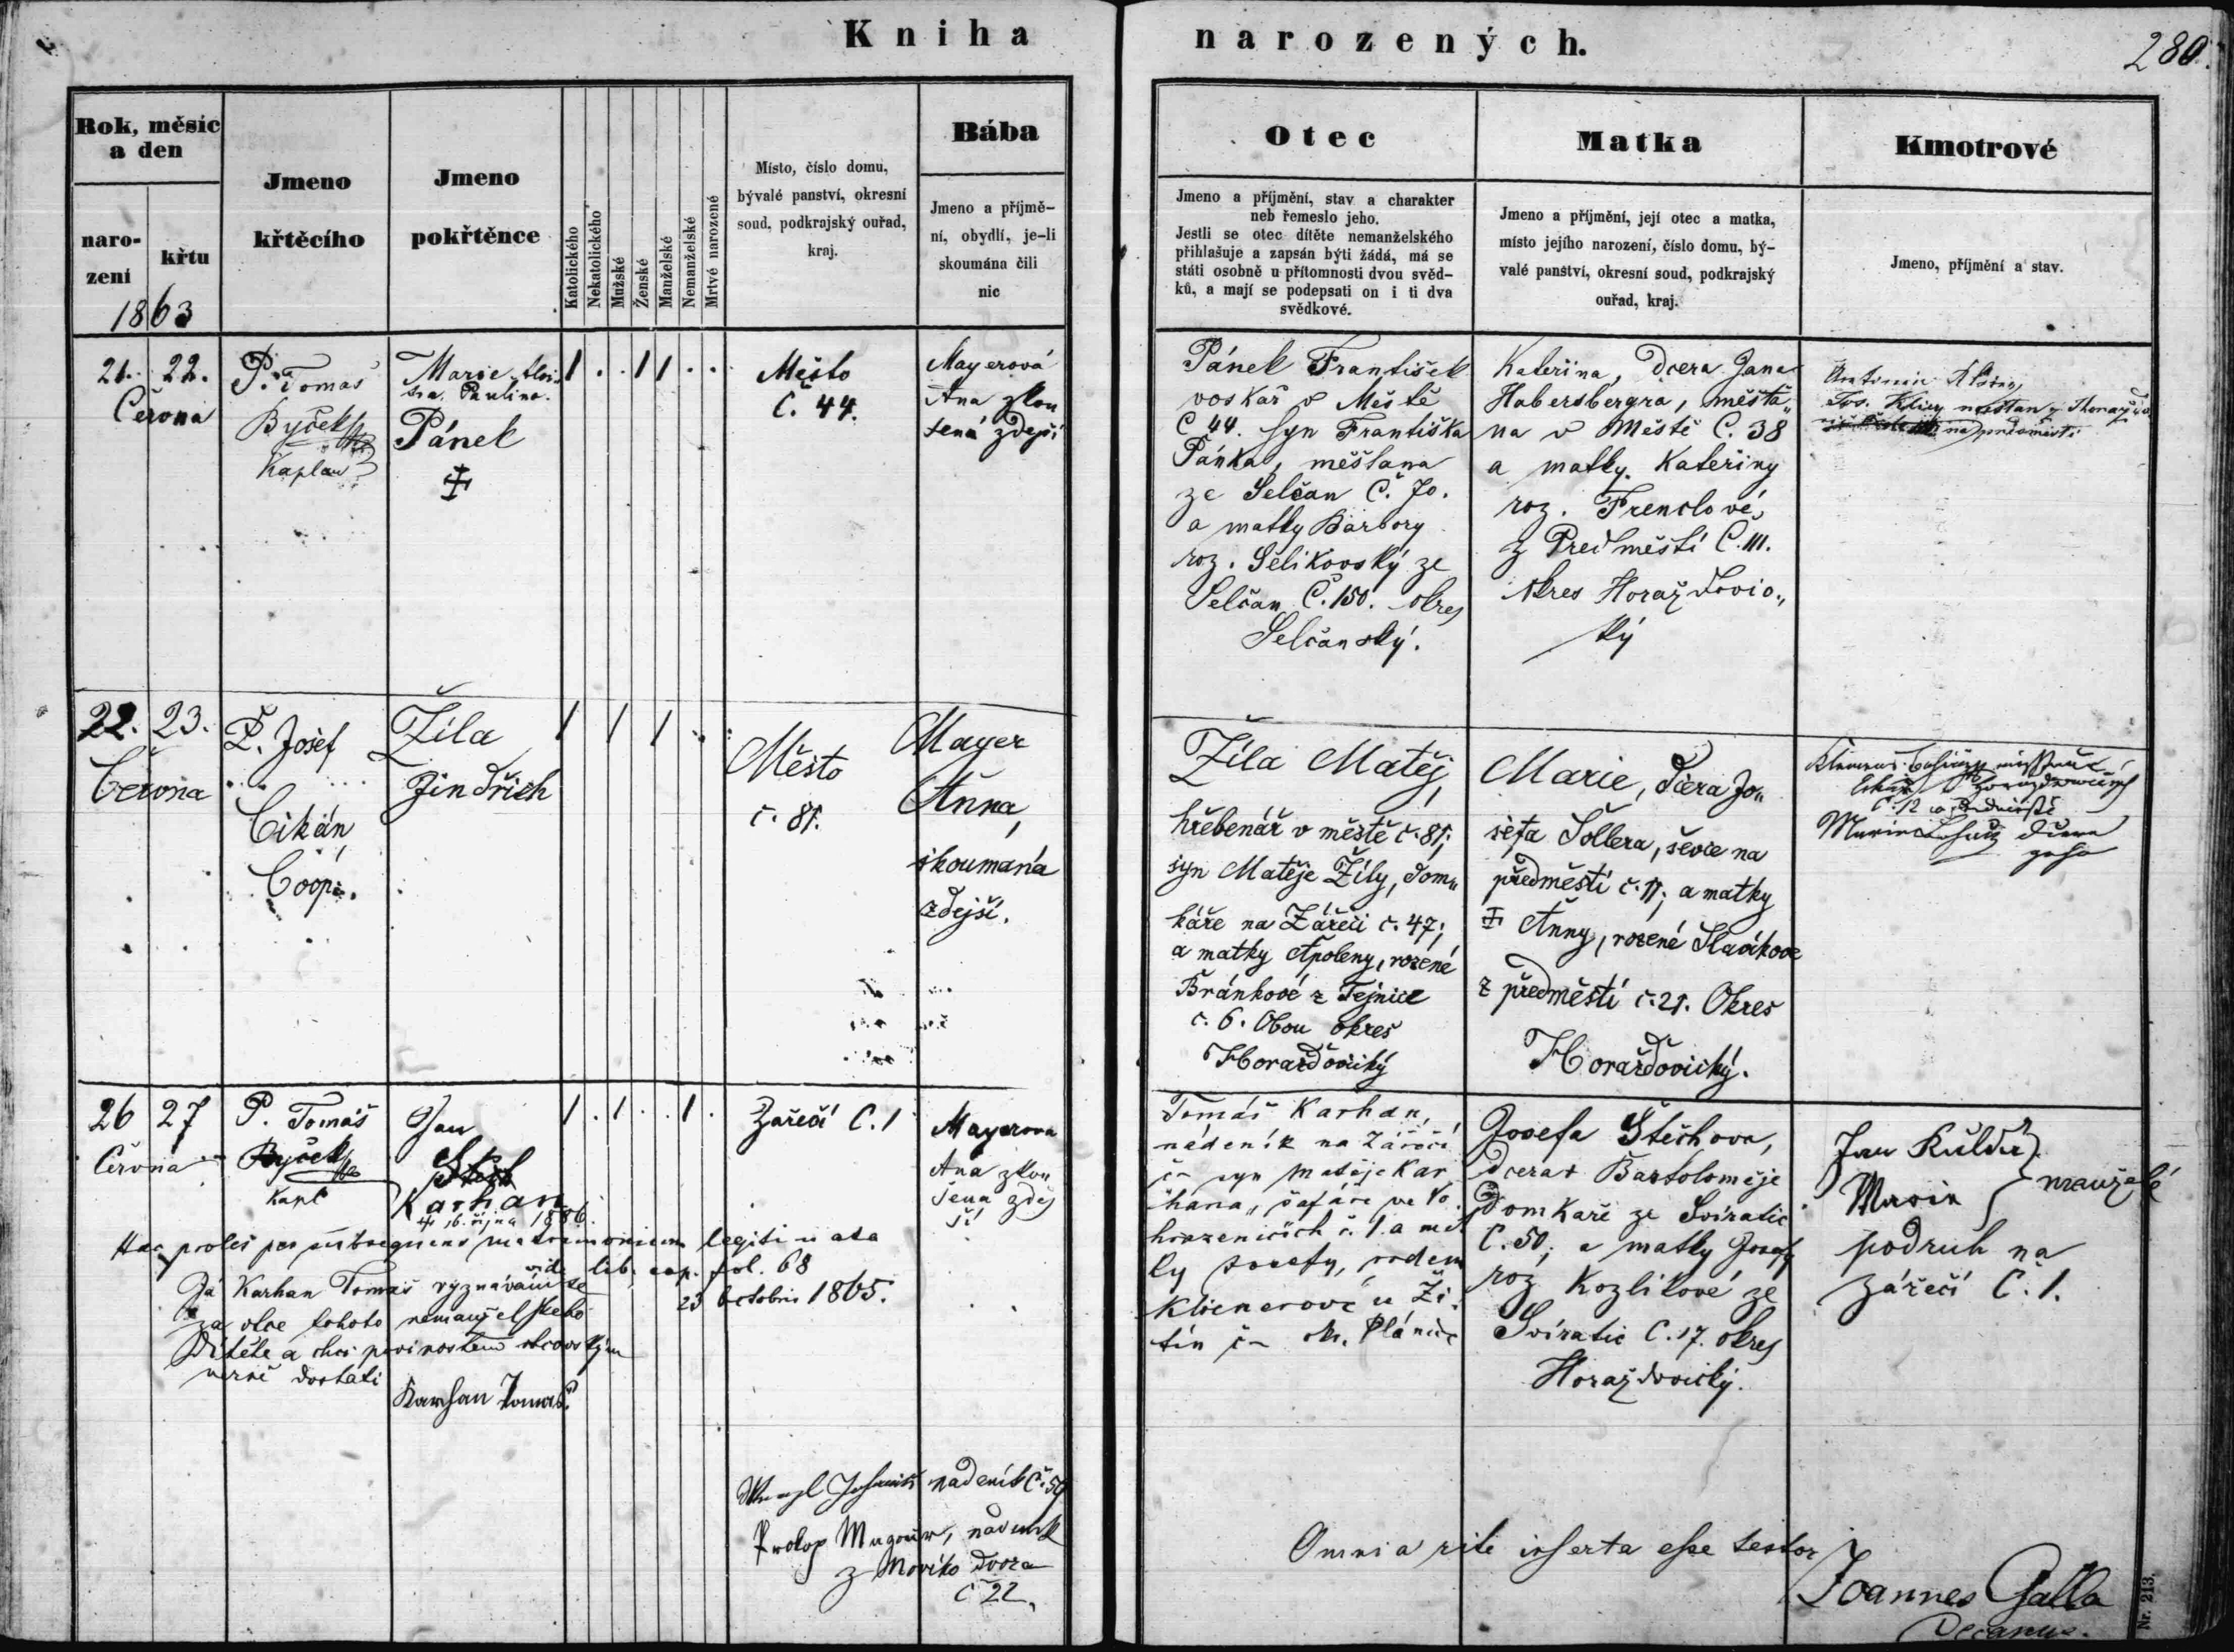 Kniha narozených.
280.
Rok, měsíc
a den
naro-
zení
křtu
1863
Jmeno
křtěcího
Jmeno
pokřtěnce
Katolického
Nekatolického
Mužské
Ženské
Manželské
Nemanželské
Mrtvé narozené
Místo, číslo domu,
bývalé panství, okresní
soud, podkrajský ouřad,
kraj.
Bába
Jmeno a příjmě-
ní, obydlí, je-li
skoumána čili
nic
Otec
Jmeno a příjmění, stav a charakter
neb řemeslo jeho.
Jestli se otec dítěte nemanželského
přihlašuje a zapsán býti žádá, má se
státi osobně u přítomnosti dvou svěd-
ků, a mají se podepsati on i ti dva
svědkové.
Matka
Jmeno a příjmění, její otec a matka,
místo jejího narození, číslo domu, bý-
valé panství, okresní soud, podkrajský
ouřad, kraj.
Kmotrové
Jmeno, příjmění a stav.
21. 22.
Června
P. Tomáš
Byček
Kaplan
Marie
Paulina.
Pánek
1 . . 1 1 . .
Město
Č. 44.
Mayerová
Ana zkou
šená zdejší
Pánek František
voskař v Městě
C 44. syn Františka
Pánka, měšťana
ze Selčan Č. 70.
a matky Barbory
roz. Šelikovský ze
Selčan Č. 150. okres
Selčanský.
Kateřina, dcera Jana
Habersbergra, měšťa„
na v Městě C. 38
a matky Kateřiny
roz. Frenclové,
z Předměstí C. 111.
okres Horažďovic„
ký
Antonín
na předměstí
22. 23.
Června
P. Josef
Cikán,
Coop.
Žíla
Jindřich
1 1 1
Město
č. 81.
Mayer
Anna,
skoumaná
zdejší.
Žíla Matěj,
hřebenář v městě č. 81;
syn Matěje Žíly, dom„
káře na Zářečí č. 47;
a matky Apoleny, rozené
Bránkové z Tejnice
č. 6. Obou okres
Horažďovický
Marie, dcera Jo„
sefa Šollera, ševce na
předměstí č. 11; a matky
Anny, rozené Slavíkove
z předměstí č. 21. Okres
Horažďovický.
Marie dcera
26 27
Června
P. Tomáš
Byček
Kapl
Jan
Štěch
Karhan
16. října 1886.
1 . 1 . . 1 .
Zářečí C. 1
Mayerova
Ana zkou
šena zdej
ší
Tomáš Karhan,
nádeník na Zářečí
č- syn Matěje Kar
hana, šafáře ve
č. 1. a mat
ky Josefy, rodem
č- ok. Plánice
Josefa Štěchova,
dcera Bartoloměje
Domkaře ze Svíratic
C. 50; a matky Josefy
roz Kozlíkové ze
Svíratic C. 17. okres
Horažďovický.
Jan
Marie
manželé
podruh na
zářečí Č. 1.
Haec proles per subsequens matrimonium legitimata
vide lib. cop. fol. 68
23 Octobris 1865.
Já Karhan Tomáš vyznávám se
za otce tohoto nemanželského
Dítěte a chci povinostem otcovským
věrně dostáti
Karhan Tomáš
nádeník č. 59
Prokop nádeník
z Nového Dvora
č 22.
Omnia rite inserta esse testor
Joannes Galla
Decanus.
Nr. 213.